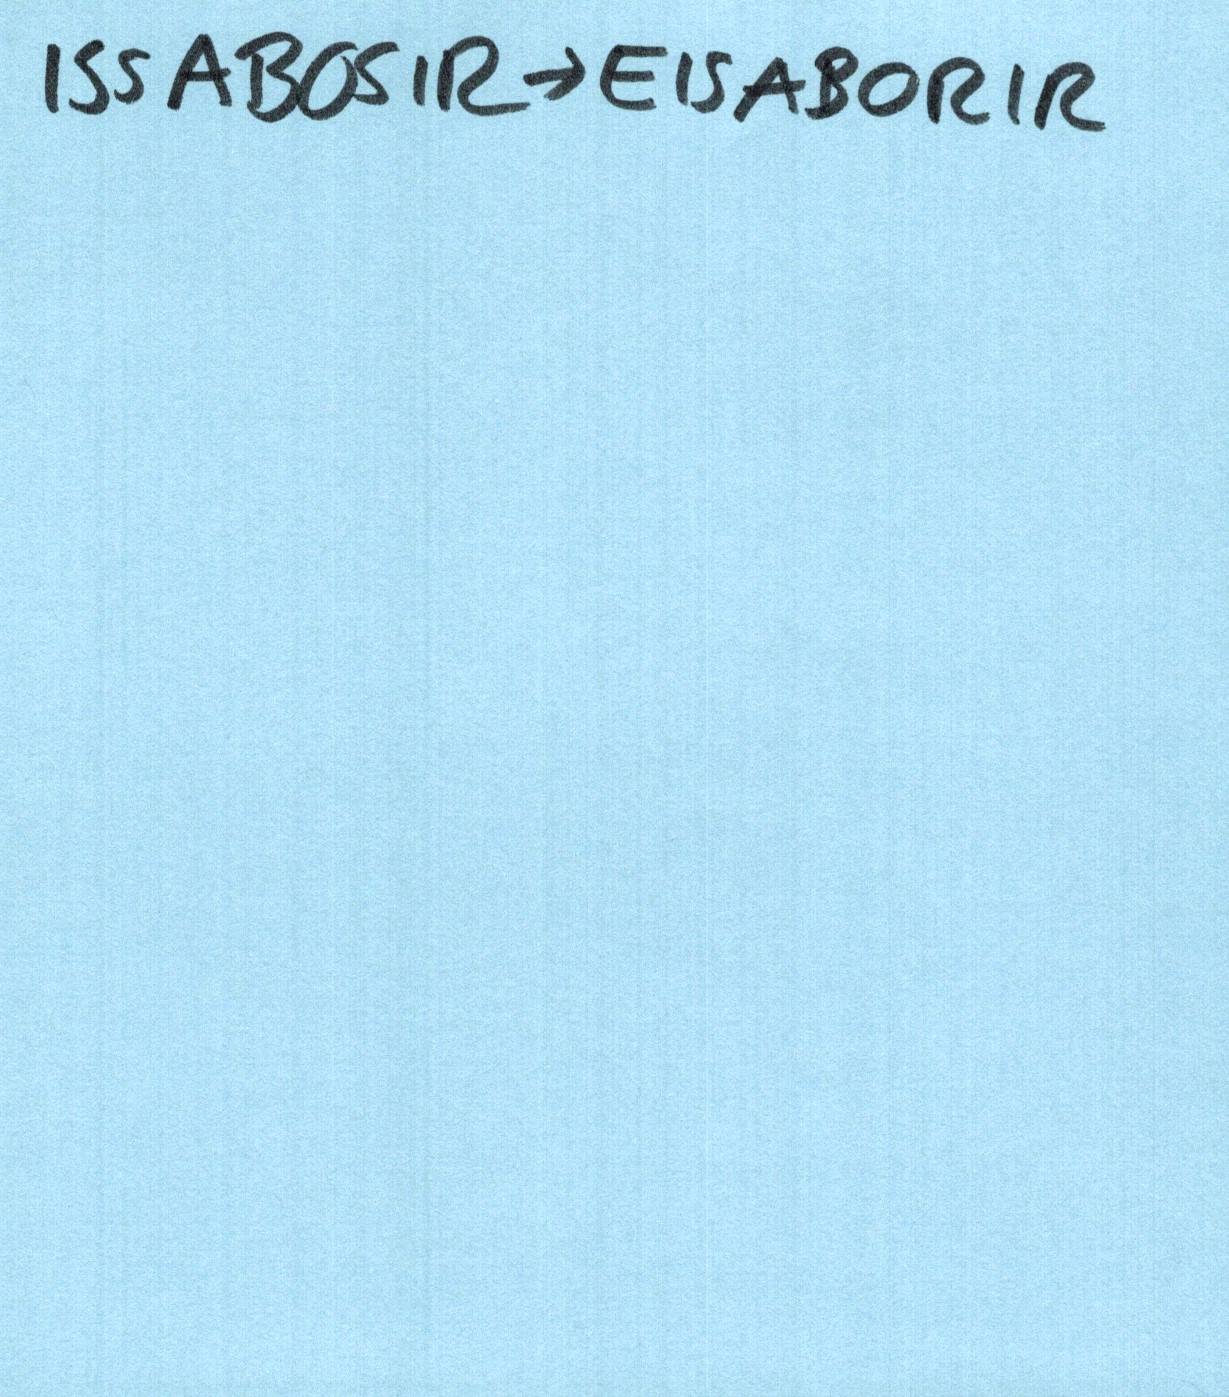 ISSABOSIR→EISABORIR